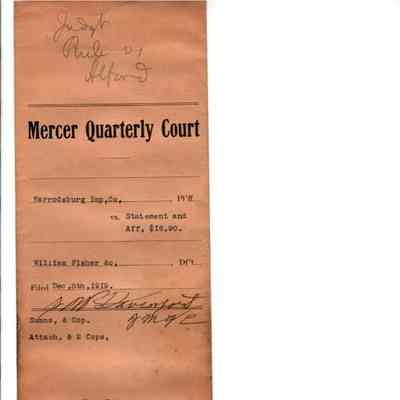 Judgt
Rule vs
Alford
Mercer Quarterly Court
Harrodsburg Imp,Co, Pl'ff.
vs. Statement and
Aff, $16.90.
William Fisher &c, Df't.
Filed Dec,8th,1919,
J W Davenport
J M Q C
Sumns, & Cop.
Attach, & 2 Cops,